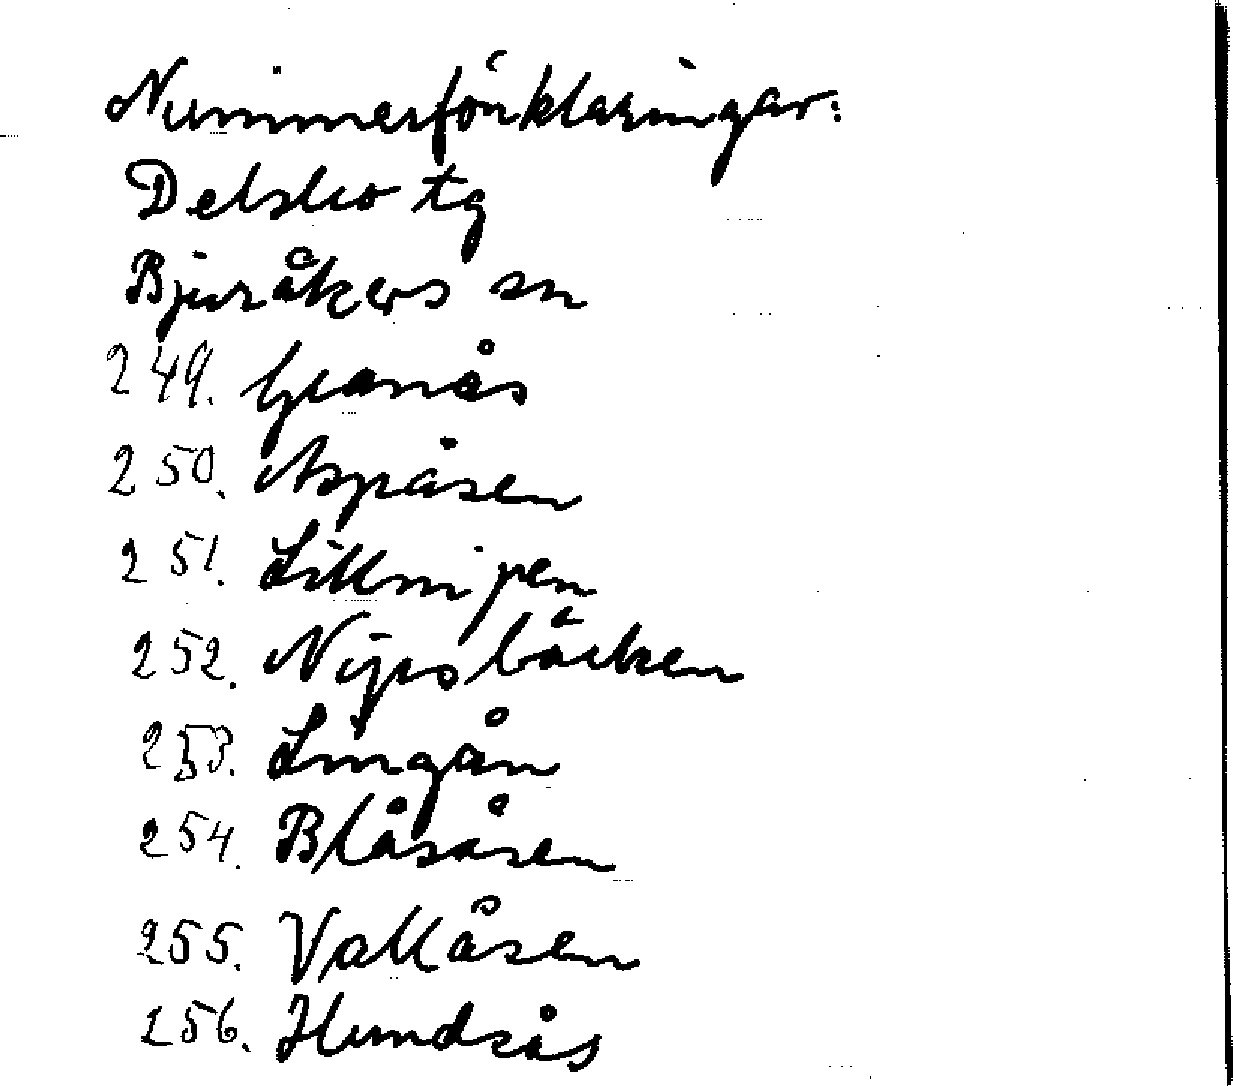 Nummerförklaringar:
Delsbo tg
Bjuråkers sn
249. Granås
250. Aspåsen
251. Lillnipen
252. Nipsbäcken
253. Lingån
254. Blåsåsen
255. Vallåsen
256. Hundsås